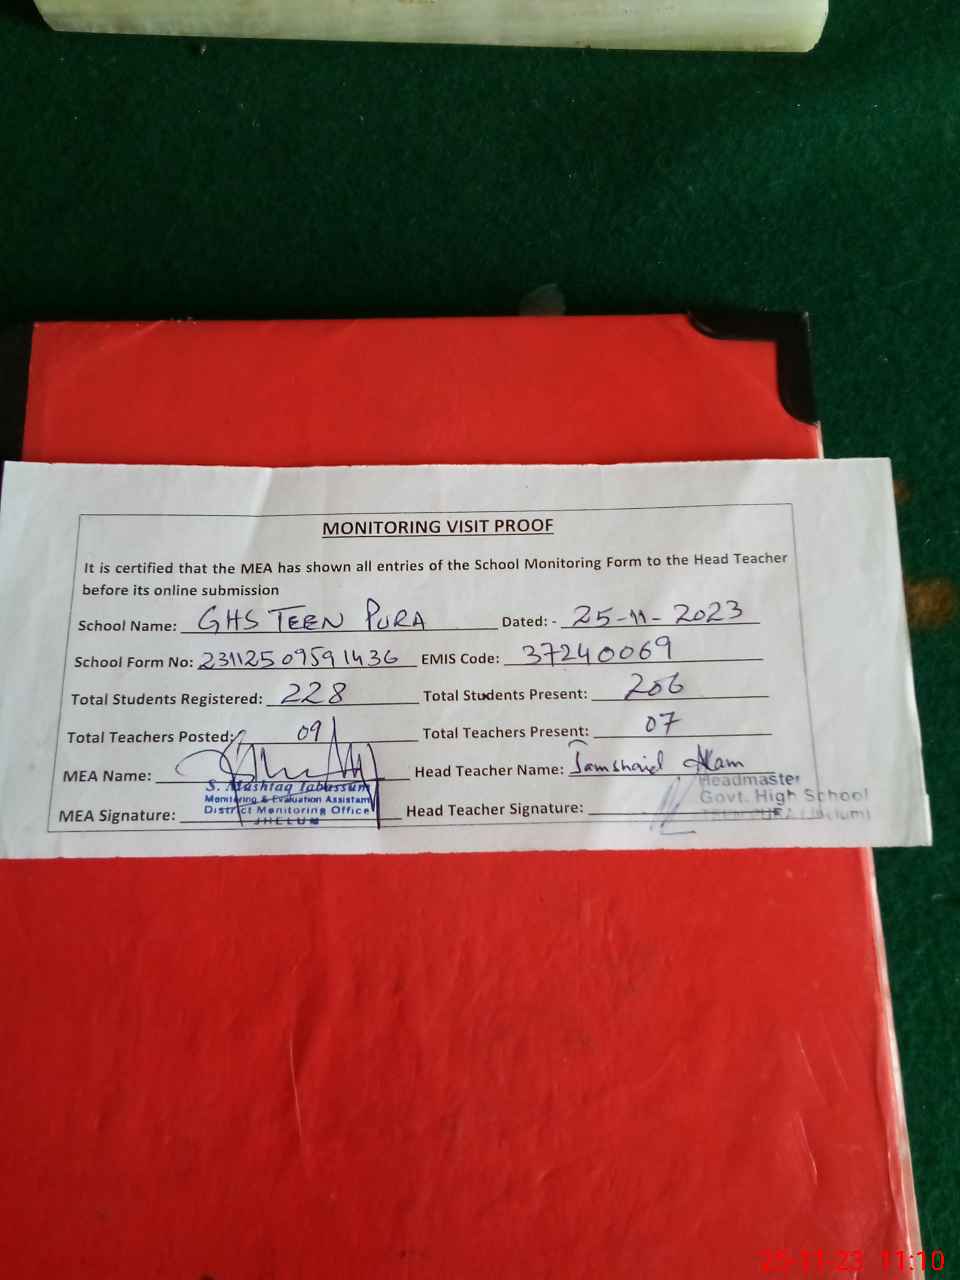 MONITORING VISIT PROOF
It is certified that the MEA has shown all entries of the School Monitoring Form to the Head Teacher
before its online submission
School Name: GHS TEEN PURA Dated: - 25-11-2023
School Form No: 23112509591436 EMIS Code: 37240069
Total Students Registered: 228 Total Students Present: 206
Total Teachers Posted: 09 Total Teachers Present: 07
MEA Name: Head Teacher Name: Jamshaid Alam
S. Mushtaq Tabussum Headmaster
Monitoring & Evaluation Assistant Govt. High School
District Monitoring Office (Jhelum)
MEA Signature: Head Teacher Signature:
JHELUM
25-11-23 11:10